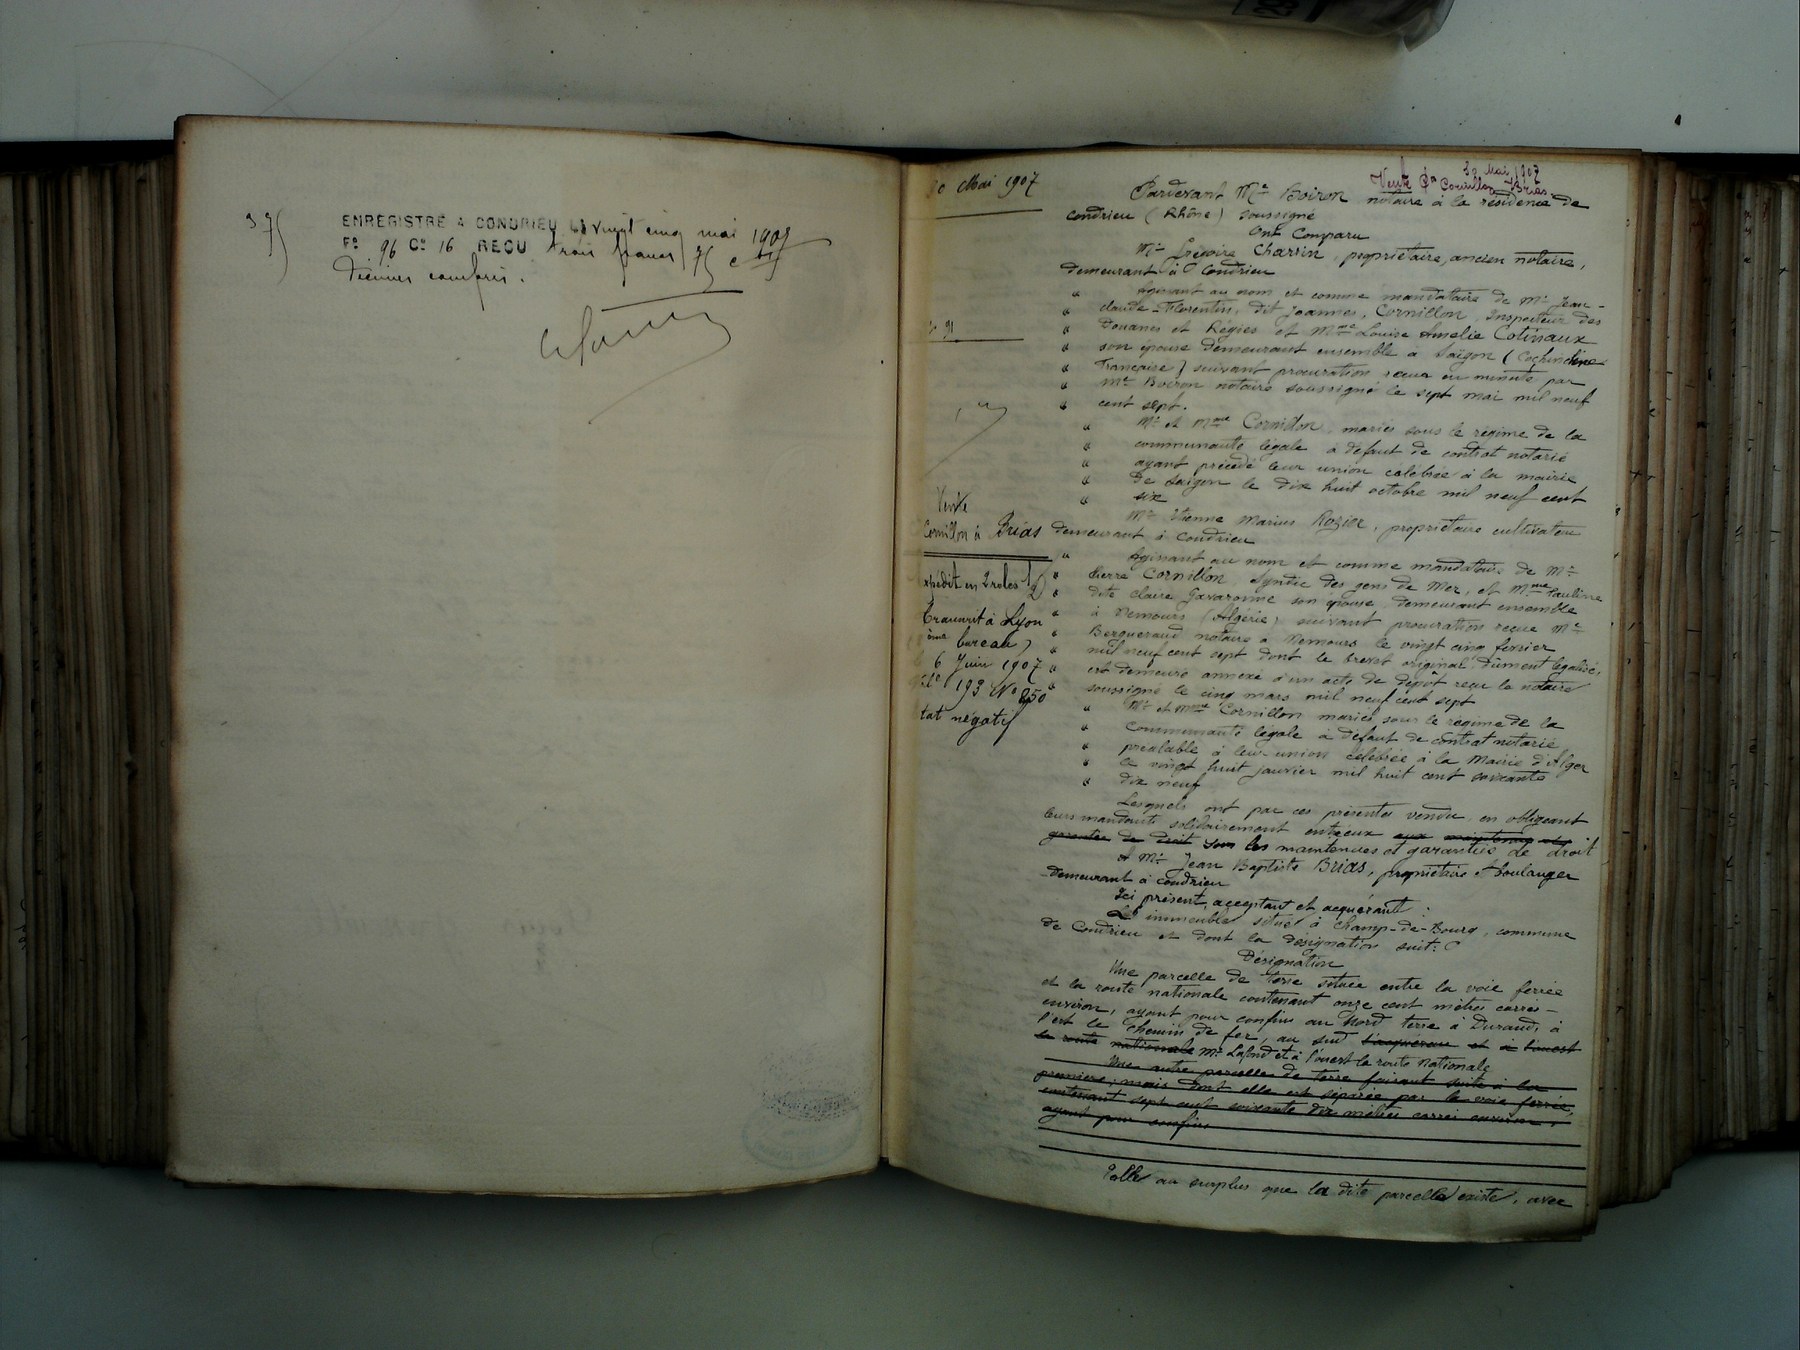 3 75
ENREGISTRÉ A CONDRIEU Le vingt cinq mai 1907
F° 96 C° 16 REÇU trois francs 75 c
décimes compris.
30 Mai 1907
30 Mai 1907
Vente Cornillon Brias
Pardevant Me Boiron notaire à la résidence de
Condrieu (Rhône) soussigné
Ont Comparu
Mr Grégoire Charrin, propriétaire, ancien notaire,
demeurant à Condrieu
" Agissant au nom et comme mandataire de Mr Jean-
" claude-Florentin, dit Joannes, Cornillon, Inspecteur des
" Douanes et Régies et Mme Louise Amelie Cotinaux
" son épouse demeurant ensemble à Saïgon (Cochinchine
" Française) suivant procuration reçue en minute par
" Me Boiron notaire soussigné le sept mai mil neuf
" cent sept.
" Mr et Mme Cornillon, mariés sous le régime de la
" communauté légale à défaut de contrat notarié
" ayant précédé leur union célébrée à la mairie
" de Saïgon le dix huit octobre mil neuf cent
" six
Mr Etienne Marius Rozier, propriétaire cultivateur
demeurant à Condrieu
" Agissant au nom et comme mandataire de Mr
" Pierre Cornillon, Syndic des gens de Mer, et Mme Pauline
" dite Claire Gavaronne son épouse, demeurant ensemble
" à Nemours (Algérie) suivant procuration reçue Me
" Bergueraud notaire à Nemours le vingt cinq fevrier
" mil neuf cent sept dont le brevet original dûment légalisé
" est demeuré annexé à un acte de dépôt reçu le notaire
" soussigné le cinq mars mil neuf cent sept
" Mr et Mme Cornillon mariés sous le régime de la
" Communauté légale à défaut de contrat notarié
" préalable à leur union célébrée à la Mairie d'Alger
" le vingt huit janvier mil huit cent soixante
" dix neuf
Lesquels ont par ces présentes vendu, en obligeant
leurs mandants solidairement entr'eux aux maintenue et
garantie de droit sous les maintenues et garanties de droit
A Mr Jean Baptiste Brias, propriétaire & boulanger
demeurant à Condrieu
Ici présent, acceptant et acquérant :
L'immeuble situé à Champ-de-Bourg, commune
de Condrieu et dont la désignation suit :
Désignation
Une parcelle de terre située entre la voie ferrée
et la route nationale contenant onze cent mètres carrés
environ, ayant pour confins au Nord terre à Durand, à
l'est le chemin de fer, au sud l'acquéreur et à l'ouest
la route nationale Mr Lafond et à l'ouest la route Nationale
Une autre parcelle de terre faisant suite à la
première, mais dont elle est séparée par la voie ferrée,
contenant sept cent soixante dix mètres carrés environ,
ayant pour confins
Telle au surplus que la dite parcelle existe, avec
Vente
Cornillon à Brias
xpédit en 2 roles 1/2
Transcrit à Lyon
ème bureau)
6 Juin 1907
193 No 250
tat négatif